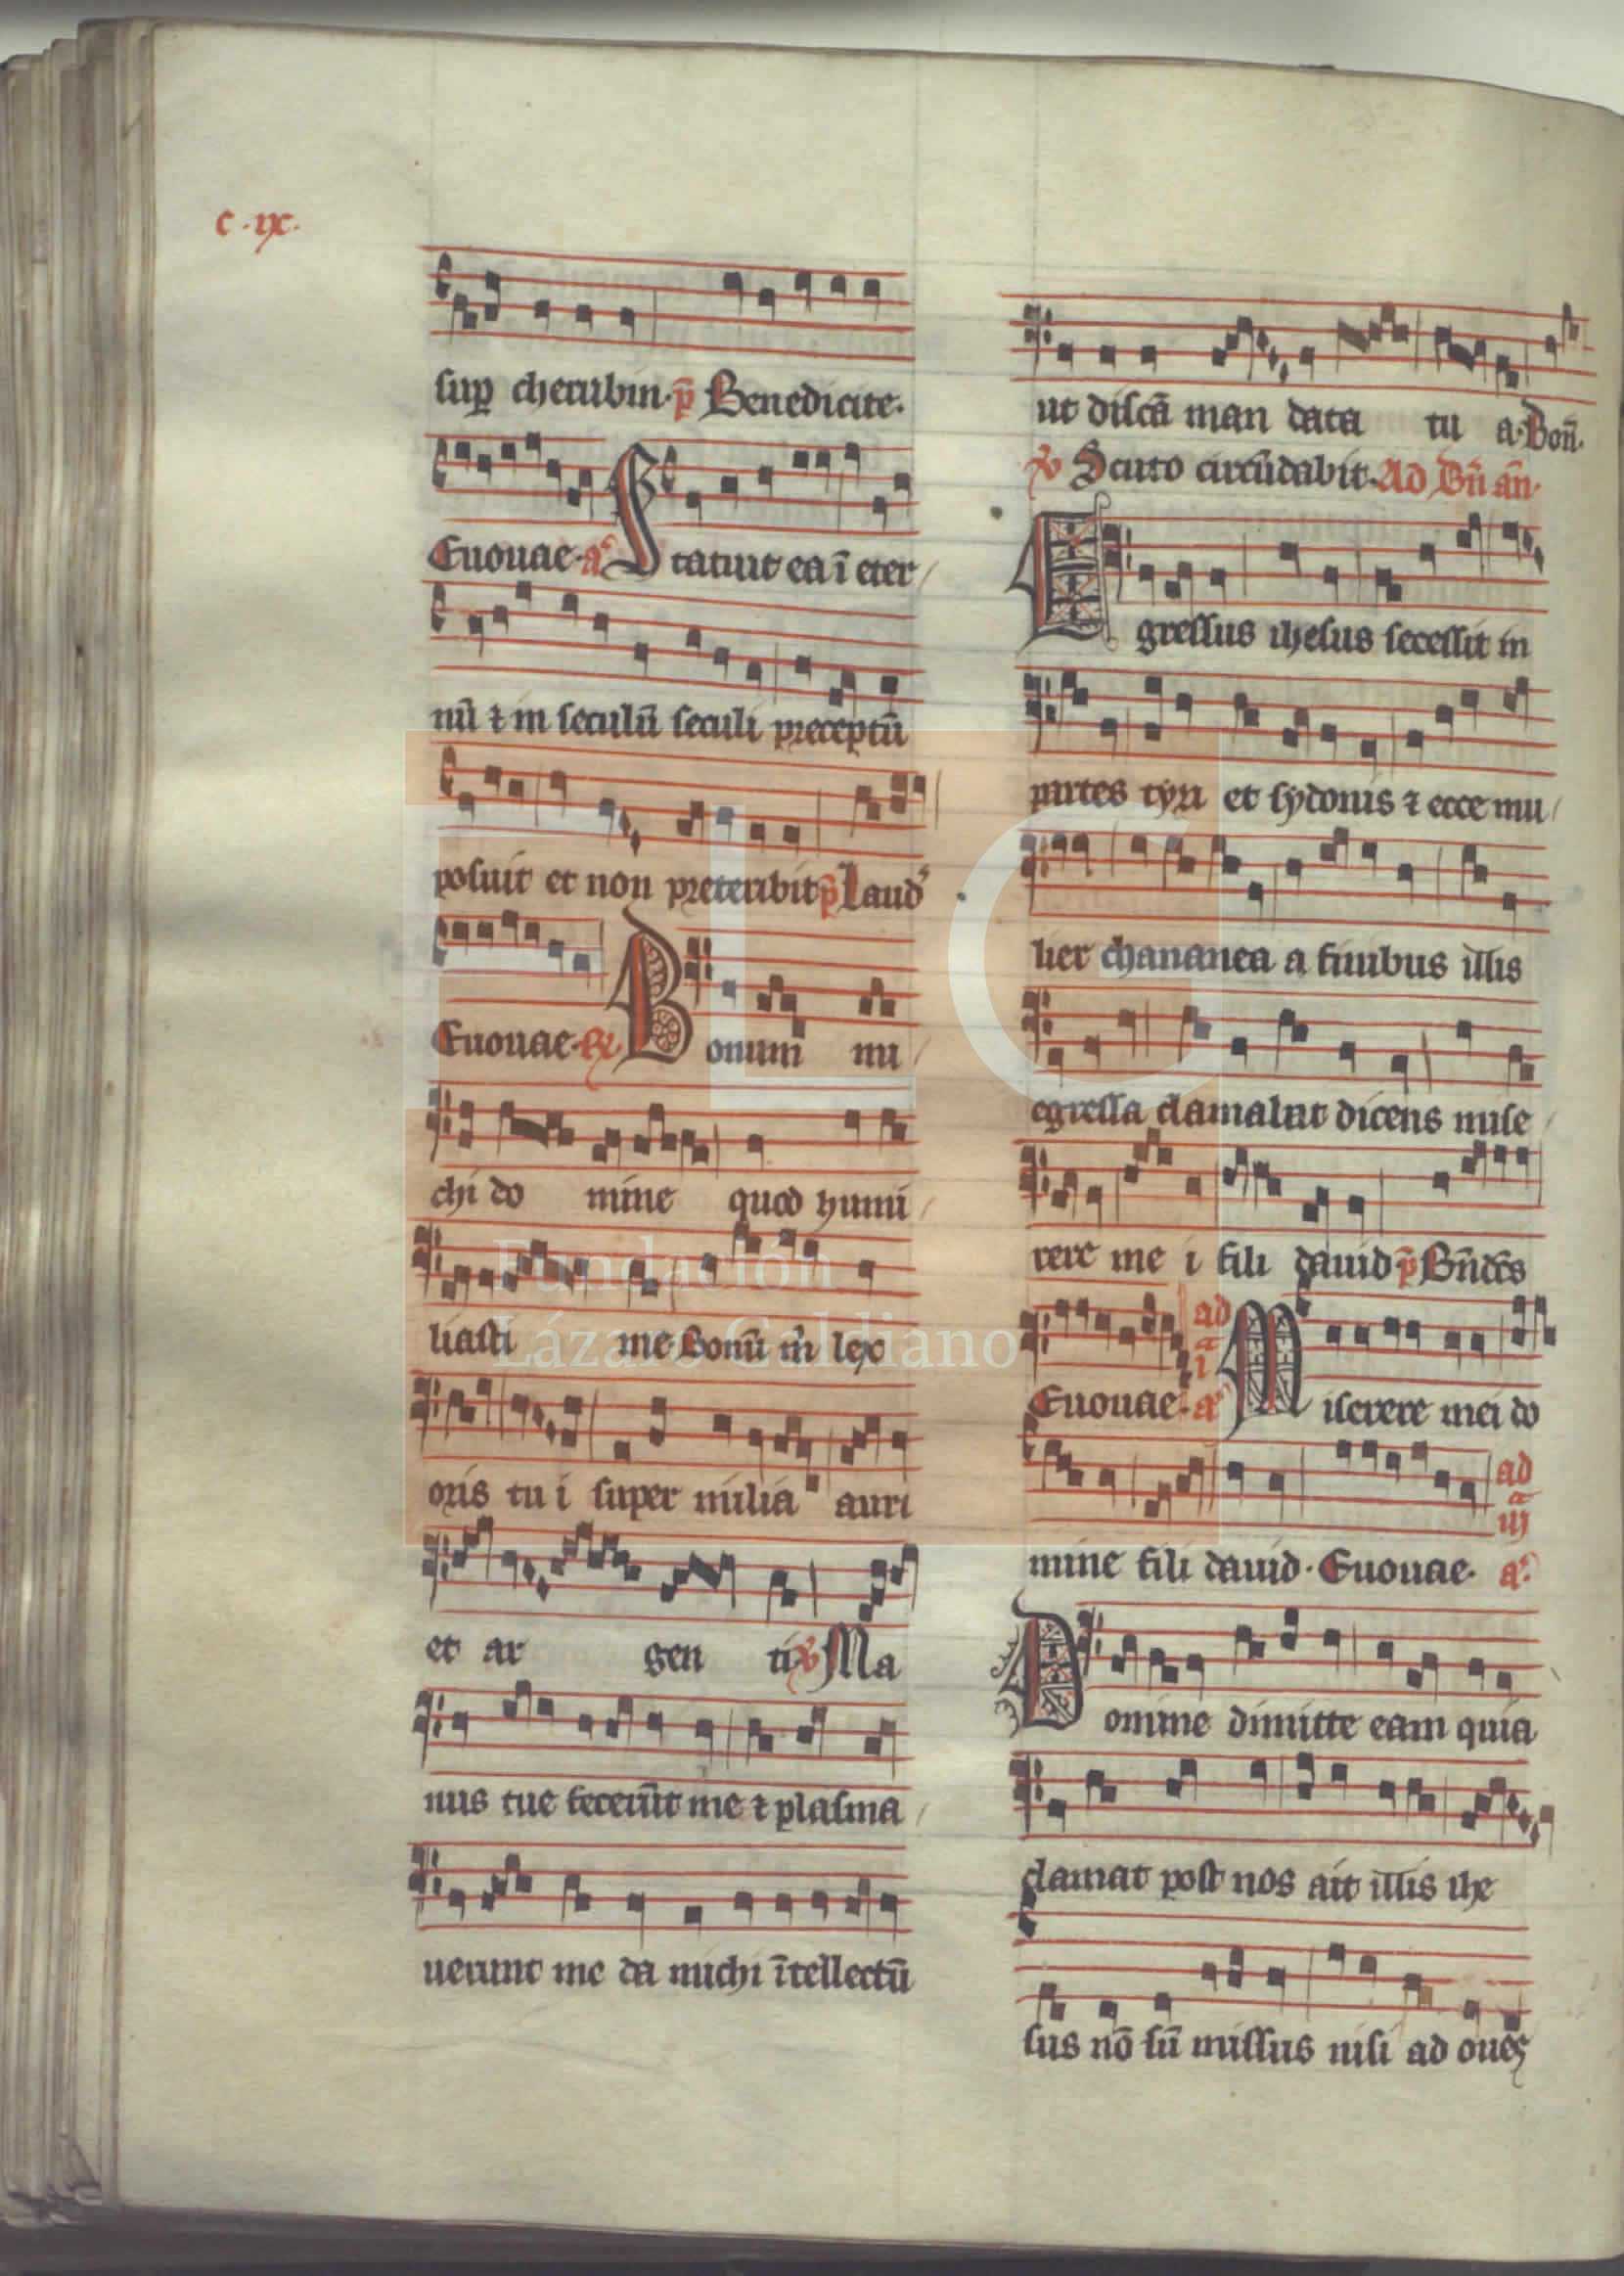 c·ix·
sup cherubin· p̄ Benedicite·
Euouae· a᷒ Statuit ea ī eter/
nū ⁊ in seculū seculi preceptū
posuit et non preteribit p̄ Laud᾽
Euouae· R̷ Bonum mi/
chi do mine quod humi/
liasti me· Bonū m̄ lex
oris tu i super milia auri
et ar gen ti ℣ Ma
nus tue fecerūt me ⁊ plasma/
uerunt me da michi ītellectū
ut discā man data tu a· Bon̄·
℣ Scuto circūdabit· Ad Bn̄ an̄·
Egressus ihesus secessit in
partes tyri et sydonis ⁊ ecce mu/
lier chananea a finibus illis
egressa clamabat dicens mise/
rere me i fili dauid p̄ Bn̄dc̄s
Euouae· ad i a᷒ Miserere mei do
mine fili dauid· Euouae· ad iij a᷒
Domine dimitte eam quia
clamat post nos ait illis ihe
sus nō sū missus nisi ad oues
FLG
Fundación
Lázaro Galdiano